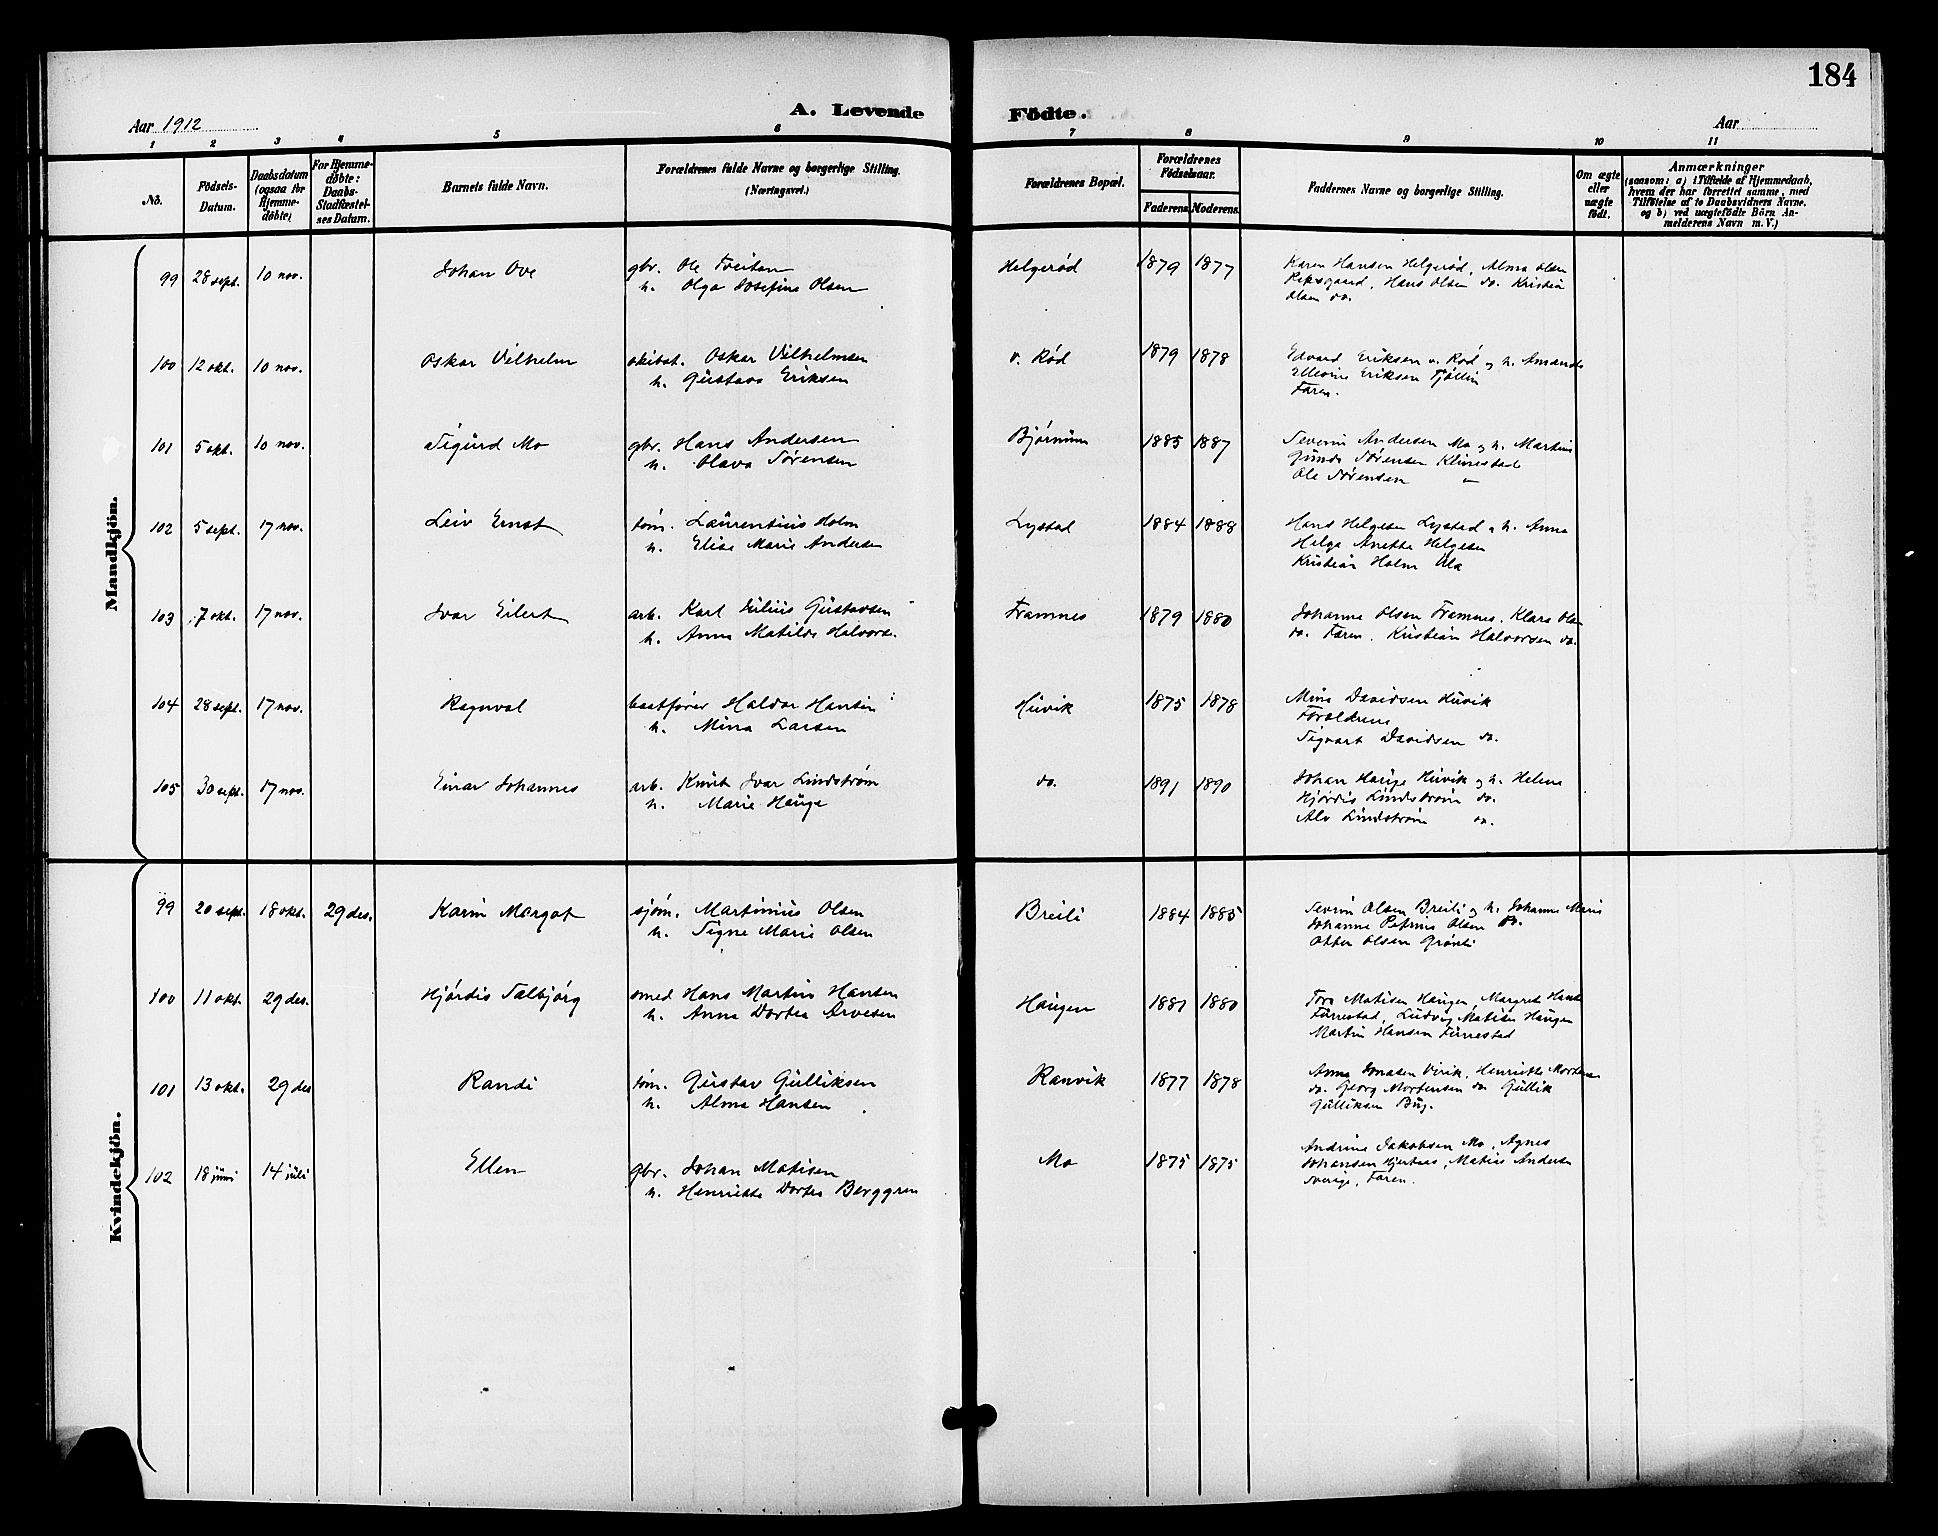 184
Aar 1912
A. Levende
Födte.
Aar
1 2 3 4 5 6 7 8 9 10 11
No.
Födsels-
Datum.
Daabsdatum
(ogsaa for
Hjemme-
döbte)
For Hjemme-
döbte:
Daabs-
Stadfæstel-
ses Datum.
Barnets fulde Navn.
Forældrenes fulde Navne og borgerlige Stilling.
(Næringsvei.)
Forældrenes Bopæl.
Forældrenes
Födselsaar.
Faderens Moderens.
Faddernes Navne og borgerlige Stilling.
Om ægte
eller
uægte
født.
Anmærkninger
(saasom: a) i Tilfælde af Hjemmedaab,
hvem der har forrettet samme, med
Tilföielse af to Daabsvidners Navne.
og b) ved uægtefödte Börn An-
melderens Navn m. V.)
Mandkjön.
99 28 sept. 10 nov. Johan Ove gbr. Ole Freitan Helgerød 1879 1877 Karen Hansen Helgerød, Alma Olsen
h. Olga Josefine Olsen Hans Olsen do. Kristian
Olsen do.
100 12 okt. 10 nov. Oskar Vilhelm skibst. Oskar Vilhelmsen v. Rød 1879 1878 Edvard Eriksen v. Rød og h. Amanda
h. Gustava Eriksen Ellevine Eriksen Tjølling
Faren.
101 5 okt. 10 nov. Sigurd Mo gbr. Hans Andersen Bjørnum 1885 1887 Severin Andersen Mo og h. Martine
h. Olava Sørensen Gunda Sørensen Klinestad
Ole Sørensen "
102 5 sept. 17 nov. Leiv Ernst tøm. Laurentius Holm Lystad 1884 1888 Hans Helgesen Lystad og h. Anna
h. Elise Marie Andersen Helga Anette Helgesen
Kristian Holm Ula
103 7 okt. 17 nov. Ivar Eilert arb. Karl Julius Gustavsen Framnes 1879 1880 Johanne Olsen Framnes, Klara Olsen
h. Anna Matilde Halvorse. do. Faren, Kristian Halvorsen do.
104 28 sept. 17 nov. Ragnval baatfører Haldor Hansen Huvik 1875 1878 Mina Davidsen Huvik
h. Mina Larsen Forældrene
Sigvart Davidsen do.
105 30 sept. 17 nov. Einar Johannes arb. Knut Ivar Lindstrøm do. 1891 1890 Johan Hauge Huvik og h. Helene
h. Marie Hauge Hjørdis Lindstrøm do.
Alv Lindstrøm do.
Kvindekjön.
99 20 sept. 18 okt. 29 des. Karin Margot sjøm. Martinius Olsen Breili 1884 1885 Severin Olsen Breili og h. Johanne Marie
h. Signe Marie Olsen Johanne Petrine Olsen do.
Otter Olsen Grønli
100 11 okt. 29 des. Hjørdis Salbjørg smed Hans Martin Hansen Haugen 1881 1880 Tora Matisen Haugen, Margrete Hansen
h. Anna Dortea Arvesen Furrestad, Ludvig Matisen Haugen
Martin Hansen Furrestad
101 13 okt. 29 des Randi tøm. Gustav Gulliksen Ranvik 1877 1878 Anna Jonasen Virik, Henriette Mortense
h. Alma Hansen do. Georg Mortensen do Gullik
Gulliksen Bug.
102 18 juni 14 juli Ellen gbr. Johan Matisen Mo 1875 1875 Andrine Jakobsen Mo, Agnes
h. Henriette Dortea Berggren Johansen Hjertnes, Matias Anderse
Sverige, Faren.